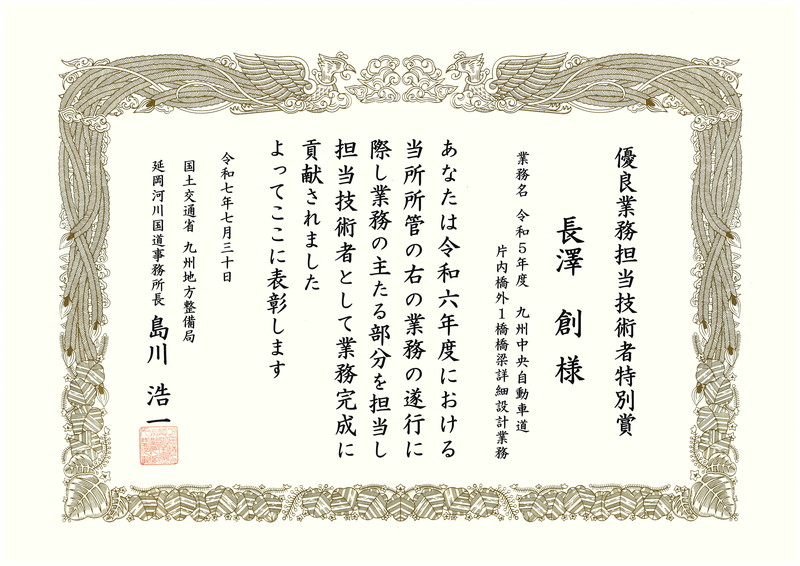 優良業務担当技術者特別賞
長澤 創 様
業務名 令和5年度 九州中央自動車道
片内橋外1橋橋梁詳細設計業務
あなたは令和六年度における
当所所管の右の業務の遂行に
際し業務の主たる部分を担当し
担当技術者として業務完成に
貢献されました
よってここに表彰します
令和七年七月三十日
国土交通省 九州地方整備局
延岡河川国道事務所長 島川 浩一